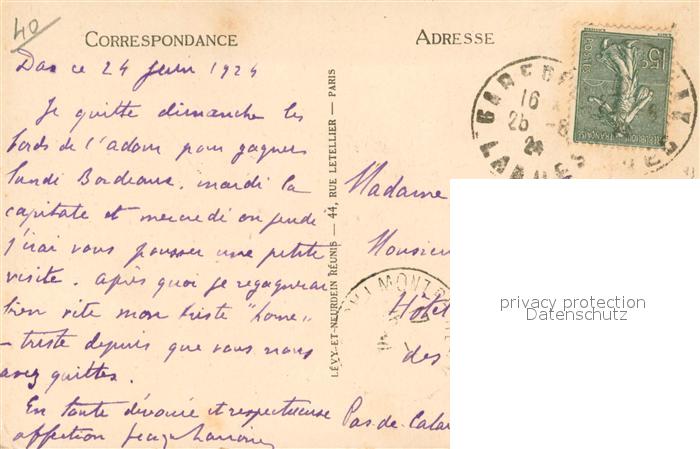 40
CORRESPONDANCE
Dax ce 24 Juin 1924
Je quitte dimanche les
bords de l'adour pour gagner
lundi Bordeaux. mardi la
capitale et mercredi ou jeudi
j'irai vous pousser une petite
visite. après quoi je regagnerai
bien vite mon triste "home"
- triste depuis que vous nous
avez quittés.
En toute dévouée et respectueuse
affection
LÉVY ET NEURDEIN RÉUNIS — 44, RUE LETELLIER — PARIS
ADRESSE
15c
POSTES
RÉPUBLIQUE FRANÇAISE
GARE DE DAX
16
25 -6
24
LANDES
Madame
Monsieur
Hôtel
des
Pas-de-Calai
MONT
privacy protection
Datenschutz